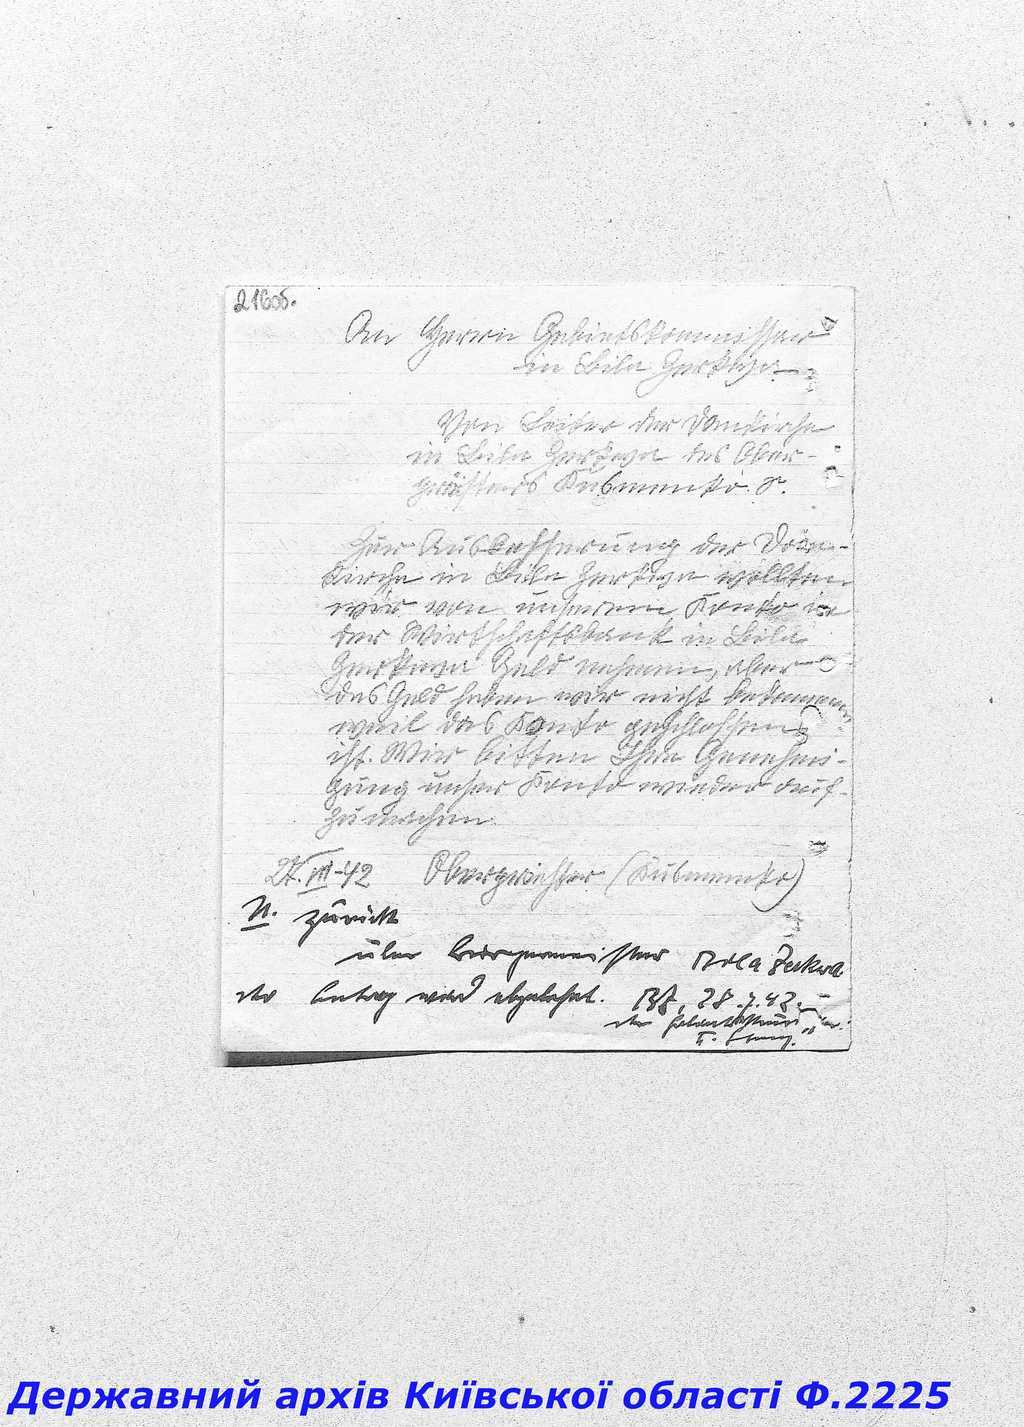 216об.
An Herrn Gebietskommissar
in Bila Zerkwa
Von Leiter der Domkirche
in Bila Zerkwa des Ober-
Kusmenko
Zur Ausbesserung der Dom-
kirche in Bila Zerkwa wollten
wir von unserem Konto in
der Wirtschaftsbank in Bila
Zerkwa Geld nehmen, aber
das Geld haben wir nicht bekommen
weil das Konto geschlossen
ist. Wir bitten Ihre Genehmi-
gung unser Konto wieder auf-
zumachen.
-42 (Kusmenko)
U. zurück
über Bürgermeister Bila Zerkwa
der Antrag wird abgelehnt. BZ, 28.7.42.
der Gebietskommissar
Державний архів Київської області Ф.2225